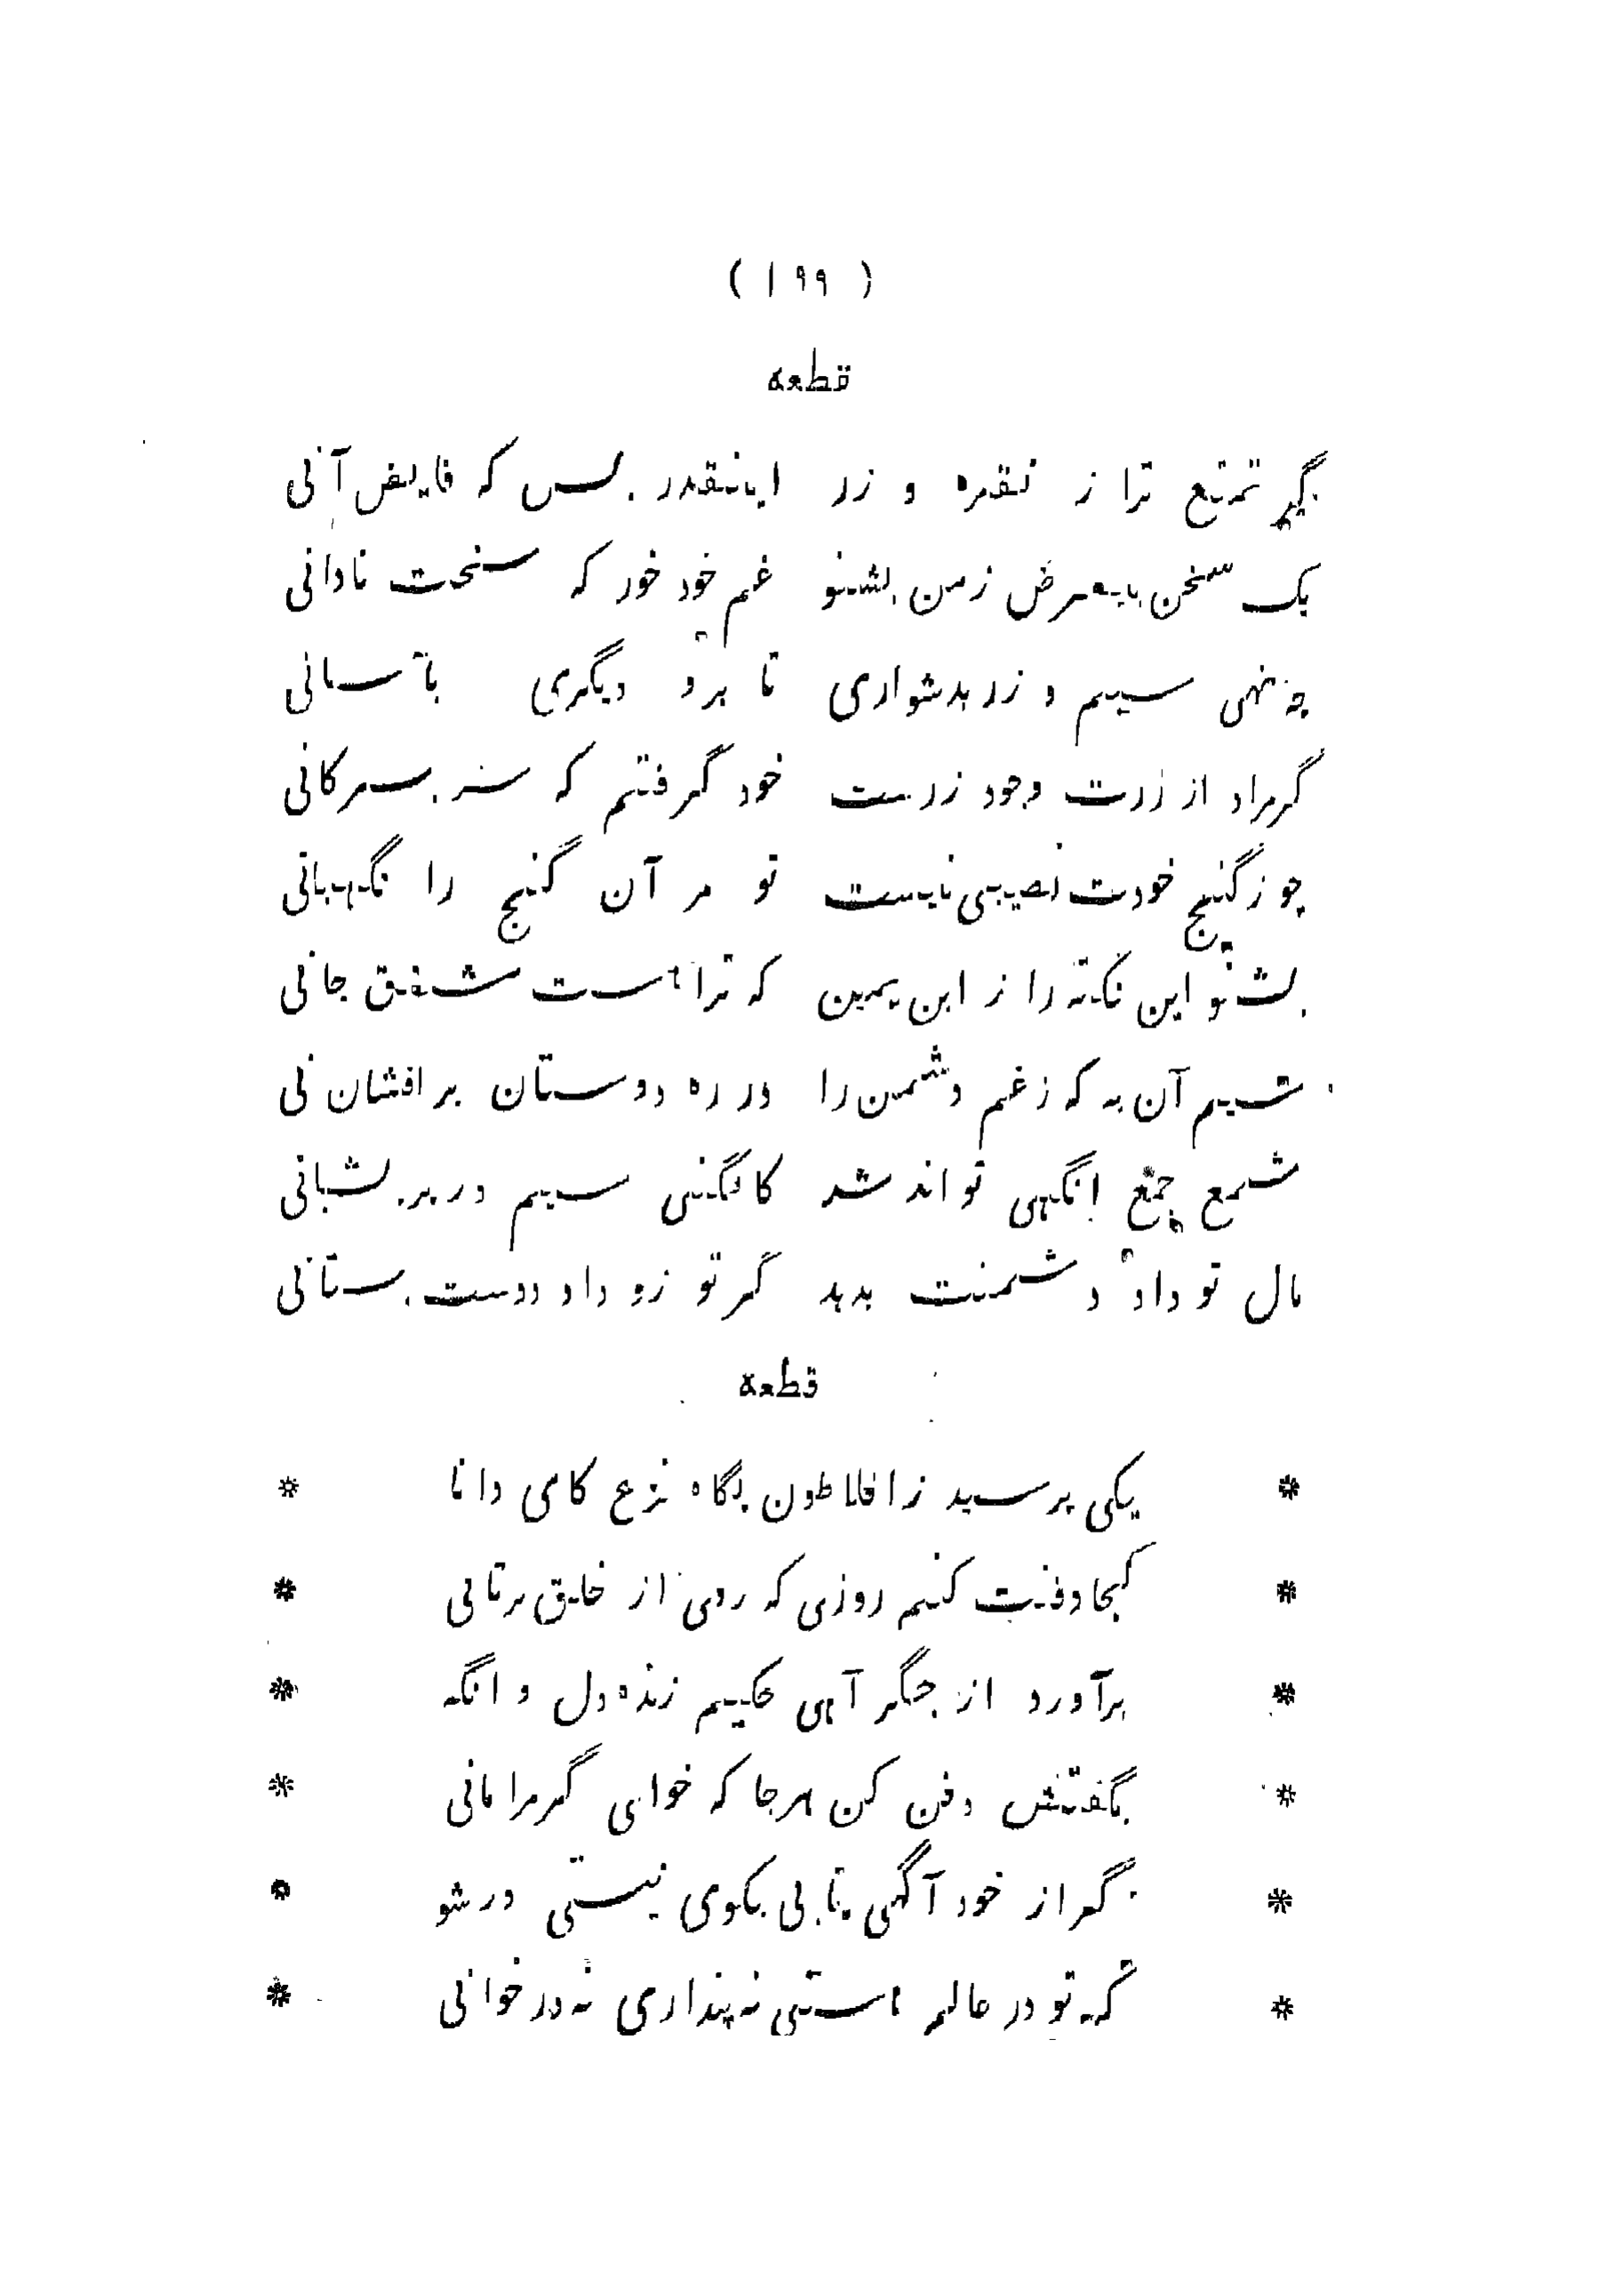 ( ۱۹۹ )
قطعه
گیر تمتع ترا ز نقره و زر اینقدر بس که فایض آنی
یک سخن بیغرض زمن بشنو غم خود خور که سخت نادانی
چه نهی سیم و زر بدشواری تا برد دیگری بآسانی
گر مراد از زرت وجود زرست خود گرفتم که سر بسر کانی
چو ز گنج خودت نصیبی نیست تو مر آن گنج را نگهبانی
بشنو این نکته را ز ابن یمین که ترا هست مشفق جانی
سیم آن به که زغم دشمن را در ره دوستان بر افشانی
شمع جمع انگهی توانند شد کافگنی سیم در پریشانی
مال تو داد دشمنت بدهد گر تو زو داد دوست بستانی
قطعه
* یکی پرسید ز افلاطون بگاه نزع کامی دانا *
* کجا دفنت کنم روزی که روی از خلق برتابی *
* برآورد از جگر آهی حکیم زنده دل وانگه *
* بگفتش دفن کن هرجا که خواهی گر مرا یابی *
* گر از خود آگهی یابی بکوی نیستی در شو *
* که تو در عالم هستی نه بیداری نه در خوابی *